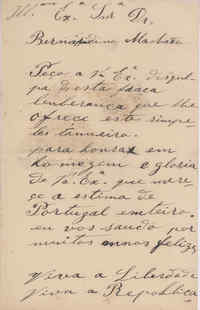 Illmo Exº Snrº Dr.
Bernardino Machado
Peço a Vª Exª desgul
pa desta fraca
lembrança que lhe
ofrece este simpres
para honrar em
homegem e gloria
de Vª Exª que mere-
çe a estima de
Portugal enteiro.
eu vos saudo por
muitos annos felizes
Viva a Liberdade
Viva a Republica